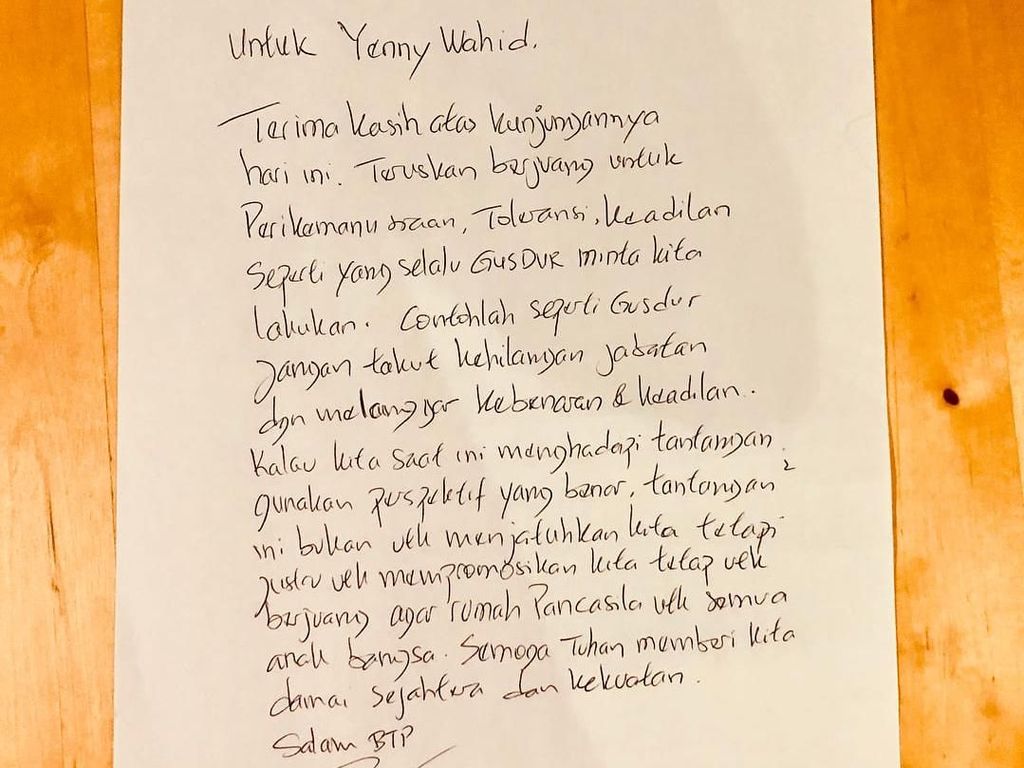 Untuk Yenny Wahid.
Terima kasih atas kunjungannya
hari ini. Teruskan berjuang untuk
Perikemanusiaan, Toleransi, Keadilan
Seperti yang selalu GUSDUR minta kita
lakukan. Contohlah seperti Gusdur
jangan takut kehilangan jabatan
dgn melanggar kebenaran & keadilan.
Kalau kita saat ini menghadapi tantangan
gunakan perspektif yang benar, tantangan²
ini bukan utk menjatuhkan kita tetapi
justru utk mempromosikan kita tetap utk
berjuang agar rumah Pancasila utk semua
anak bangsa. Semoga Tuhan memberi kita
damai sejahtera dan kekuatan.
Salam BTP